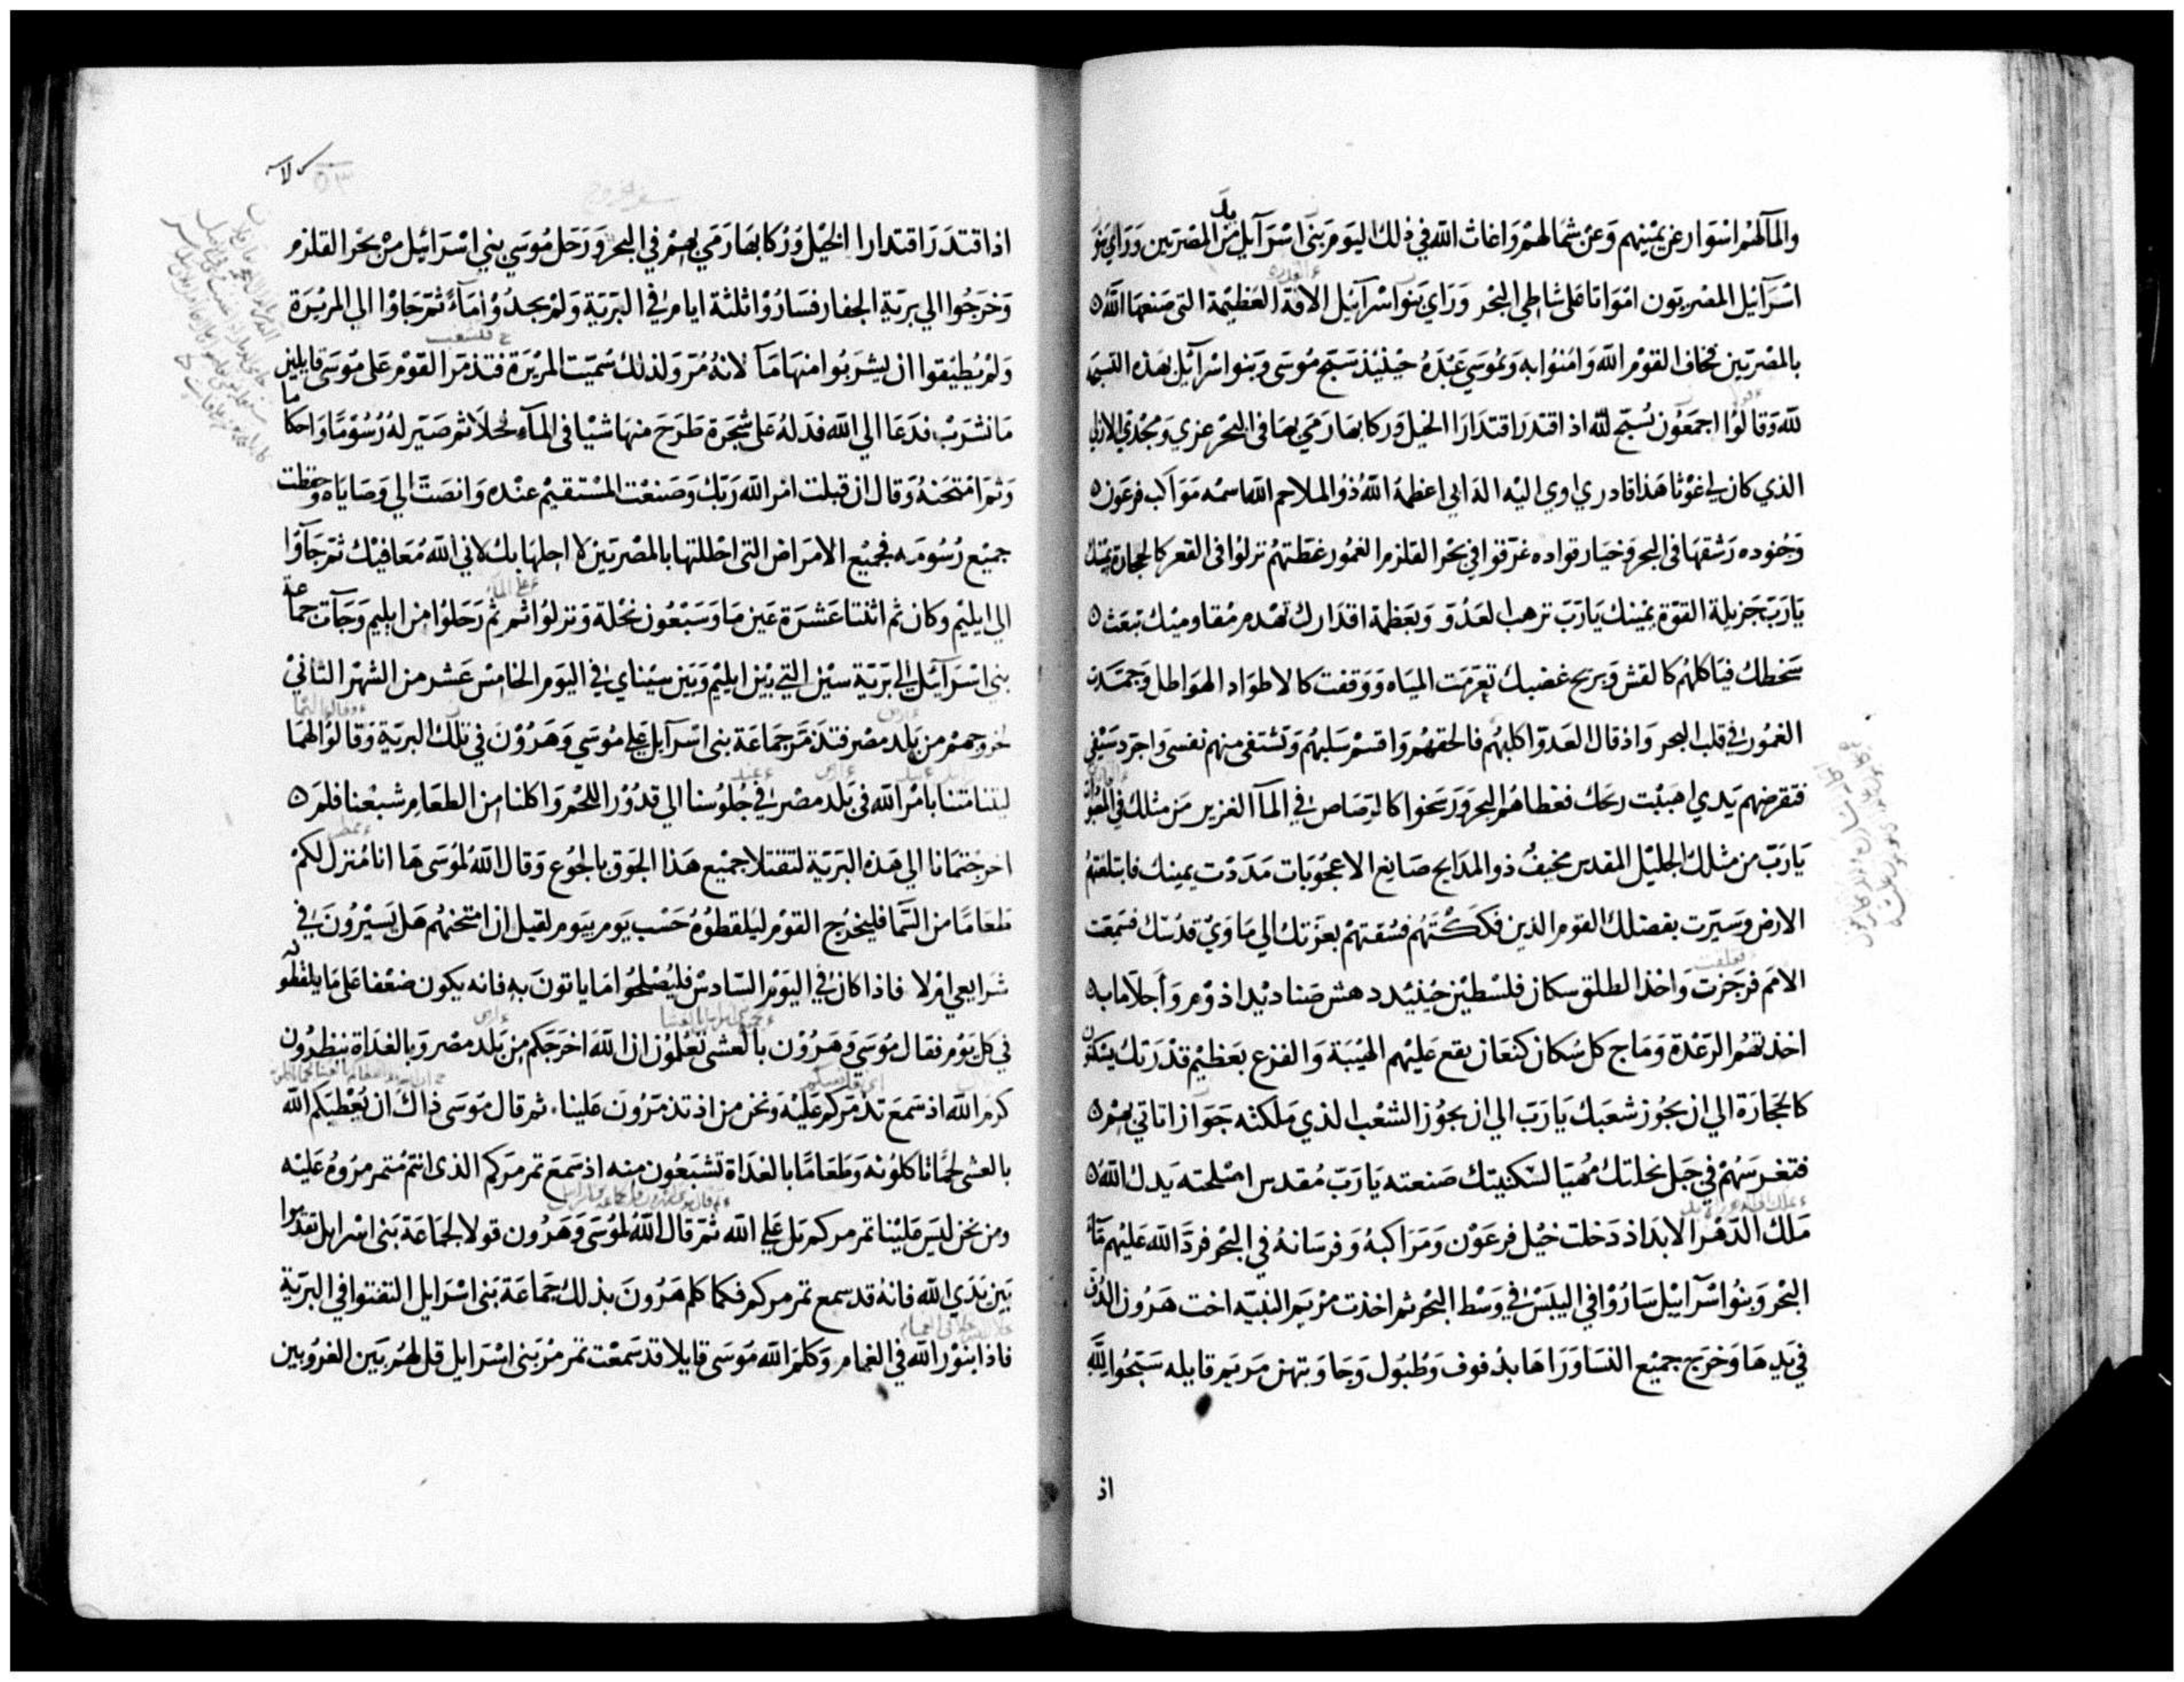 والما لهم اسوار عن يمينهم وعن شمالهم واغاث الله في ذلك اليوم بني اسرآيل من يد المصريين وراي بنو
اسرآيل المصريون امواتا على شاطي البحر وراي بنوا اسرآيل الافة العظيمة التي صنعها الله
بالمصريين فخاف القوم الله وامنوا به وبموسي عبده حينيذ سبح موسى وبنوا اسرآيل بهذه التسبحة
لله وقالوا اجمعون نسبح لله اذ اقتدر اقتدارا الخيل وركابها رمي بها في البحر عزي ومجدي الازلي
الذي كان لي غوثا هذا قادري اوي اليه اله ابي اعظمه الله ذو الملاحم الله اسمه مواكب فرعون
وجنوده رشقها في البحر وخيار قواده غرقوا في بحر القلزم الغمور غطتهم نزلوا في القعر كالحجارة يمينك
يا رب جزيلة القوة يمينك يا رب ترهب العدو وبعظمة اقدارك تهدم مقاوميك تبعث
سخطك فياكلهم كالقش وبريح غضبك تعرمت المياه ووقفت كالاطواد الهواطل وجمدت
الغمور في قلب البحر واذ قال العدو اكلبهم فالحقهم واقسم سلبهم وتشتفي منهم نفسي واجرد سيفي
فتقرضهم يدي اهببت ريحك فغطاهم البحر ورسخوا كالرصاص في المآ الغزير من مثلك في
يا رب من مثلك الجليل المقدس مخيف ذو المدايح صانع الاعجوبات مددت يمينك فابتلعتهم
الارض وسيرت بفضلك القوم الذين فككتهم فسقتهم بعزتك الي ماوي قدسك فسمعت
الامم فرجزت واخذ الطلق سكان فلسطين حينيد دهش صناديد اذوم واجلا ماب
اخذتهم الرعدة وماج كل سكان كنعان يقع عليهم الهيبة والفزع بعظيم قدرتك يسكتون
كالحجارة الي ان يجوز شعبك يا رب الي ان يجوز الشعب الذي ملكته جوازا تاتي بهم
فتغرسهم في جبل نحلتك مهيا لسكينتك صنعته يا رب مقدس اصلحته يدك الله
ملك الدهر الابد اذ دخلت خيل فرعون ومراكبه وفرسانه في البحر فرد الله عليهم مآ
البحر وبنوا اسرآييل ساروا في اليبس في وسط البحر ثم اخذت مريم النبيه اخت هرون الدف
في يدها وخرج جميع النسا وراها بدفوف وطبول وجاوبتهن مريم قايله سبحوا لله
اذ
اذ اقتدر اقتدارا الخيل وركابها رمي بهم في البحر ورحل موسي بني اسرائيل من بحر القلزم
وخرجوا الي برية الجفار فساروا ثلثة ايام في البرية ولم يجدوا مآء ثم جاوا الي المريرة
ولم يطيقوا ان يشربوا منها مآ لانه مر ولذلك سميت المريرة فتذمر القوم على موسى قايلين
ما نشرب فدعا الي الله فدله على شجرة طرح منها شيا في المآء فحلا ثم صير له رسوما واحكاما
وثم امتحنه وقال ان قبلت امر الله ربك وصنعت المستقيم عنده وانصت الي وصاياه وحفظت
جميع رسومه فجميع الامراض التي احللتها بالمصريين لا احلها بك لاني الله معافيك ثم جآوا
الي ايليم وكان ثم اثنتا عشرة عين ما وسبعون نخلة ونزلوا ثم ثم رحلوا من ايليم وجآت جماعة
بني اسرآئيل الي برية سين التي بين ايليم وبين سيناي في اليوم الخامس عشر من الشهر الثاني
لخروجهم من بلد مصر فتذمر جماعة بني اسرآيل علي موسي وهرون في تلك البرية وقالوا لهما
ليتنا متنا بامر الله في بلد مصر في جلوسنا الي قدور اللحم واكلنا من الطعام شبعنا فلم
اخرجتمانا الي هذه البرية لتقتلا جميع هذا الجوق بالجوع وقال الله لموسى ها انا منزل لكم
طعاما من السما فليخرج القوم ليلقطوه حسب يوم بيوم لقبل ان امتحنهم هل يسيرون في
شرايعي ام لا فاذا كان في اليوم السادس فليصلحوا ما ياتون به فانه يكون ضعفا على ما يلقطونه
في كل يوم فقال موسى وهرون بالعشى تعلمون ان الله اخرجكم من بلد مصر وبالغداة تنظرون
كرم الله اذ سمع تذمركم عليه ونحن من اذ تذمرون علينا ثم قال موسى ذاك ان يعطيكم الله
بالعشى لحما تاكلونه وطعاما بالغداة تشبعون منه اذ سمع تمرمركم الذي انتم متمرمروه عليه
ومن نحن ليس علينا تمرمركم بل علي الله ثم قال الله لموسى وهرون قولا لجماعة بني اسرايل تقدموا
بين يدي الله فانه قد سمع تمرمركم فكما كلم هرون بذلك جماعة بني اسرايل التفتوا في البرية
فاذا بنور الله في الغمام وكلم الله موسى قايلا قد سمعت تمرمر بني اسرايل قل لهم بين الغروبين